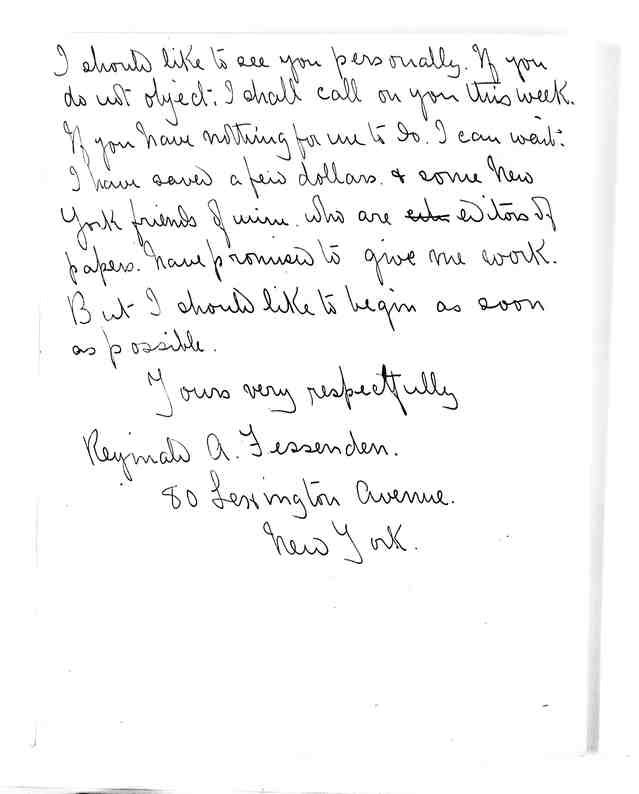 I should like to see you personally. If you
do not object. I shall call on you this week.
If you have nothing for me to do. I can wait.
I have saved a few dollars. & some New
York friends of mine. who are editors of
papers. have promised to give me work.
But I should like to begin as soon
as possible.
Yours very respectfully
Reginald A. Fessenden.
80 Lexington Avenue.
New York.